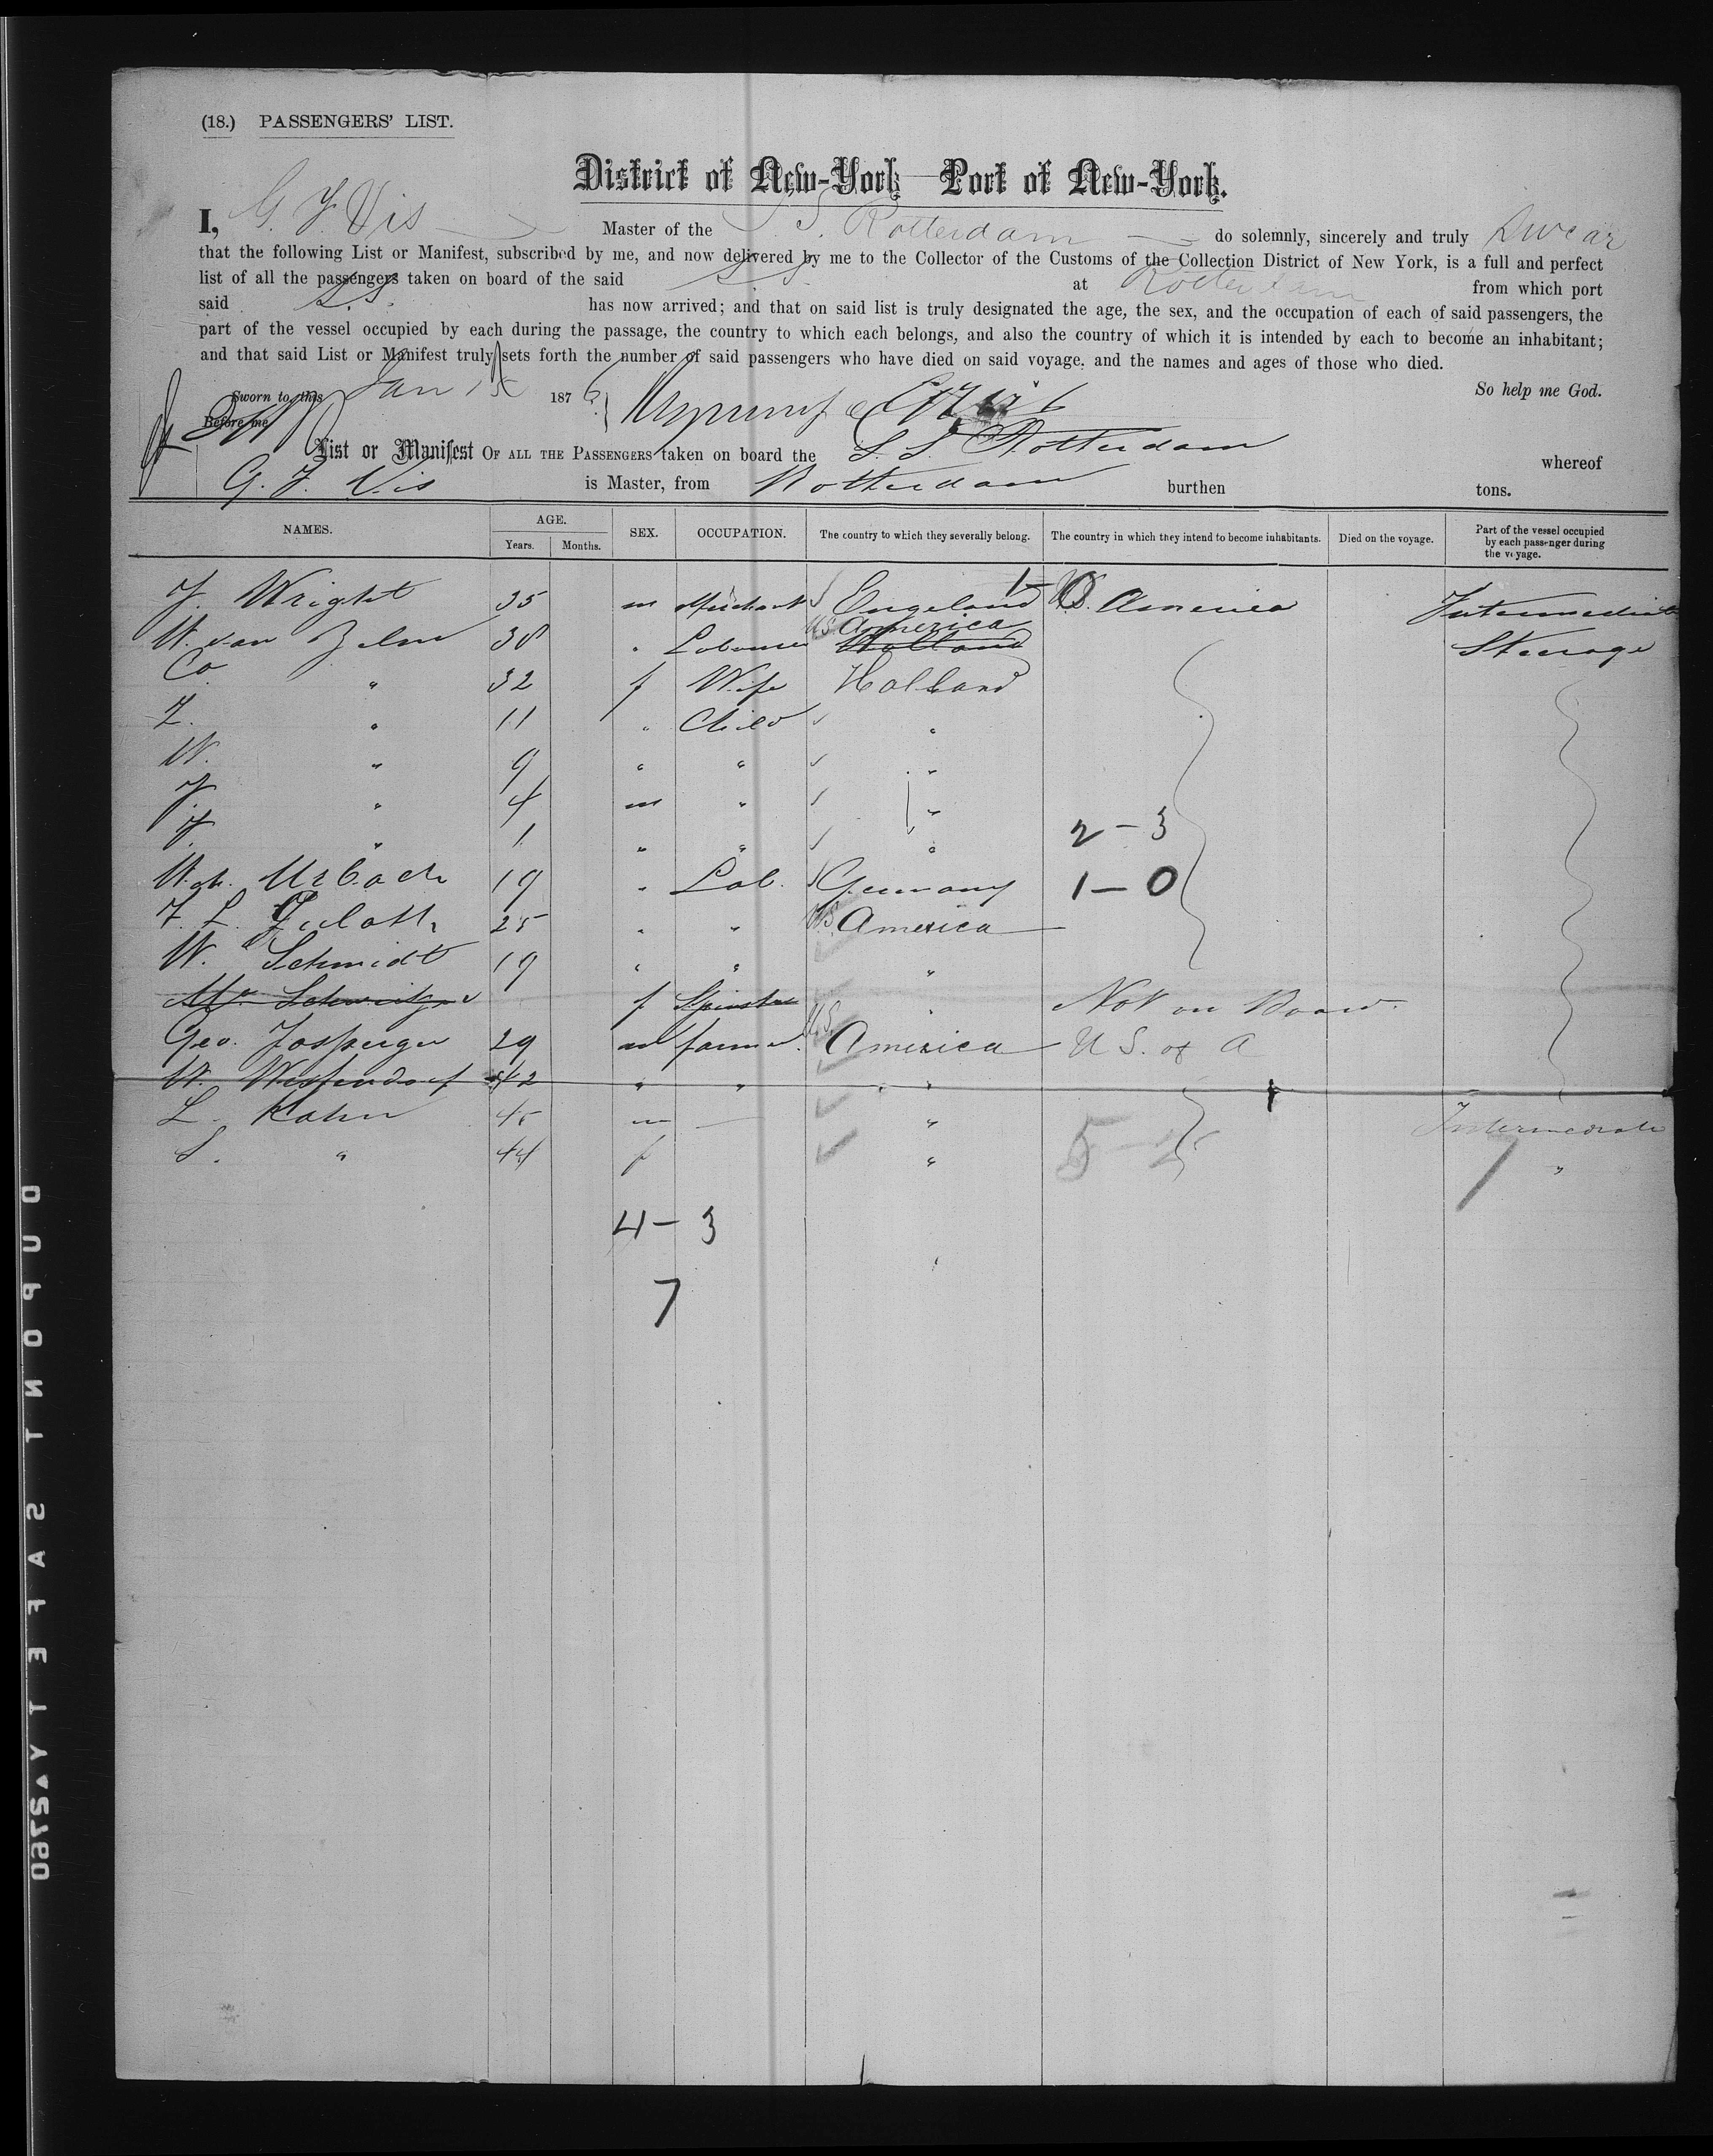 (18.) PASSENGERS' LIST.
District of New-York Port of New-York.
I, G. J. Vis Master of the S. S. Rotterdam do solemnly, sincerely and truly swear
that the following List or Manifest, subscribed by me, and now delivered by me to the Collector of the Customs of the Collection District of New York, is a full and perfect
list of all the passengers taken on board of the said S.S. at Rotterdam from which port
said S.S. has now arrived; and that on said list is truly designated the age, the sex, and the occupation of each of said passengers, the
part of the vessel occupied by each during the passage, the country to which each belongs, and also the country of which it is intended by each to become an inhabitant;
and that said List or Manifest truly sets forth the number of said passengers who have died on said voyage, and the names and ages of those who died.
Sworn to this Jan 1876 So help me God.
Before me
List or Manifest OF ALL THE PASSENGERS taken on board the S. S. Rotterdam whereof
G. J. Vis is Master, from Rotterdam burthen tons.
NAMES. AGE. Years. Months. SEX. OCCUPATION. The country to which they severally belong. The country in which they intend to become inhabitants. Died on the voyage. Part of the vessel occupied by each passenger during the voyage.
J. Wright 35 m Merchant Engeland 1- U.S. America Intermediate
W. van Zelm 38 " Labourer U.S. America Holland Steerage
Co " 32 f Wife Holland
Z. " 11 " Child "
W. " 9 " " "
J. " 4 m " "
J. " 1 " " " 2 - 3
Urbach 19 " Lab. Germany 1 - 0
F. L. 25 " " U.S. America
W. Schmidt 19 " " "
f Spinster " Not on Board.
Geo. Jossperger 29 m farmer U.S. America U S. of A
W. Westendorf 42 " " "
L. Kahn 45 m — " Intermediate
S. " 44 f " 5 - 2 "
4 - 3
7
DUPONT SAFETY